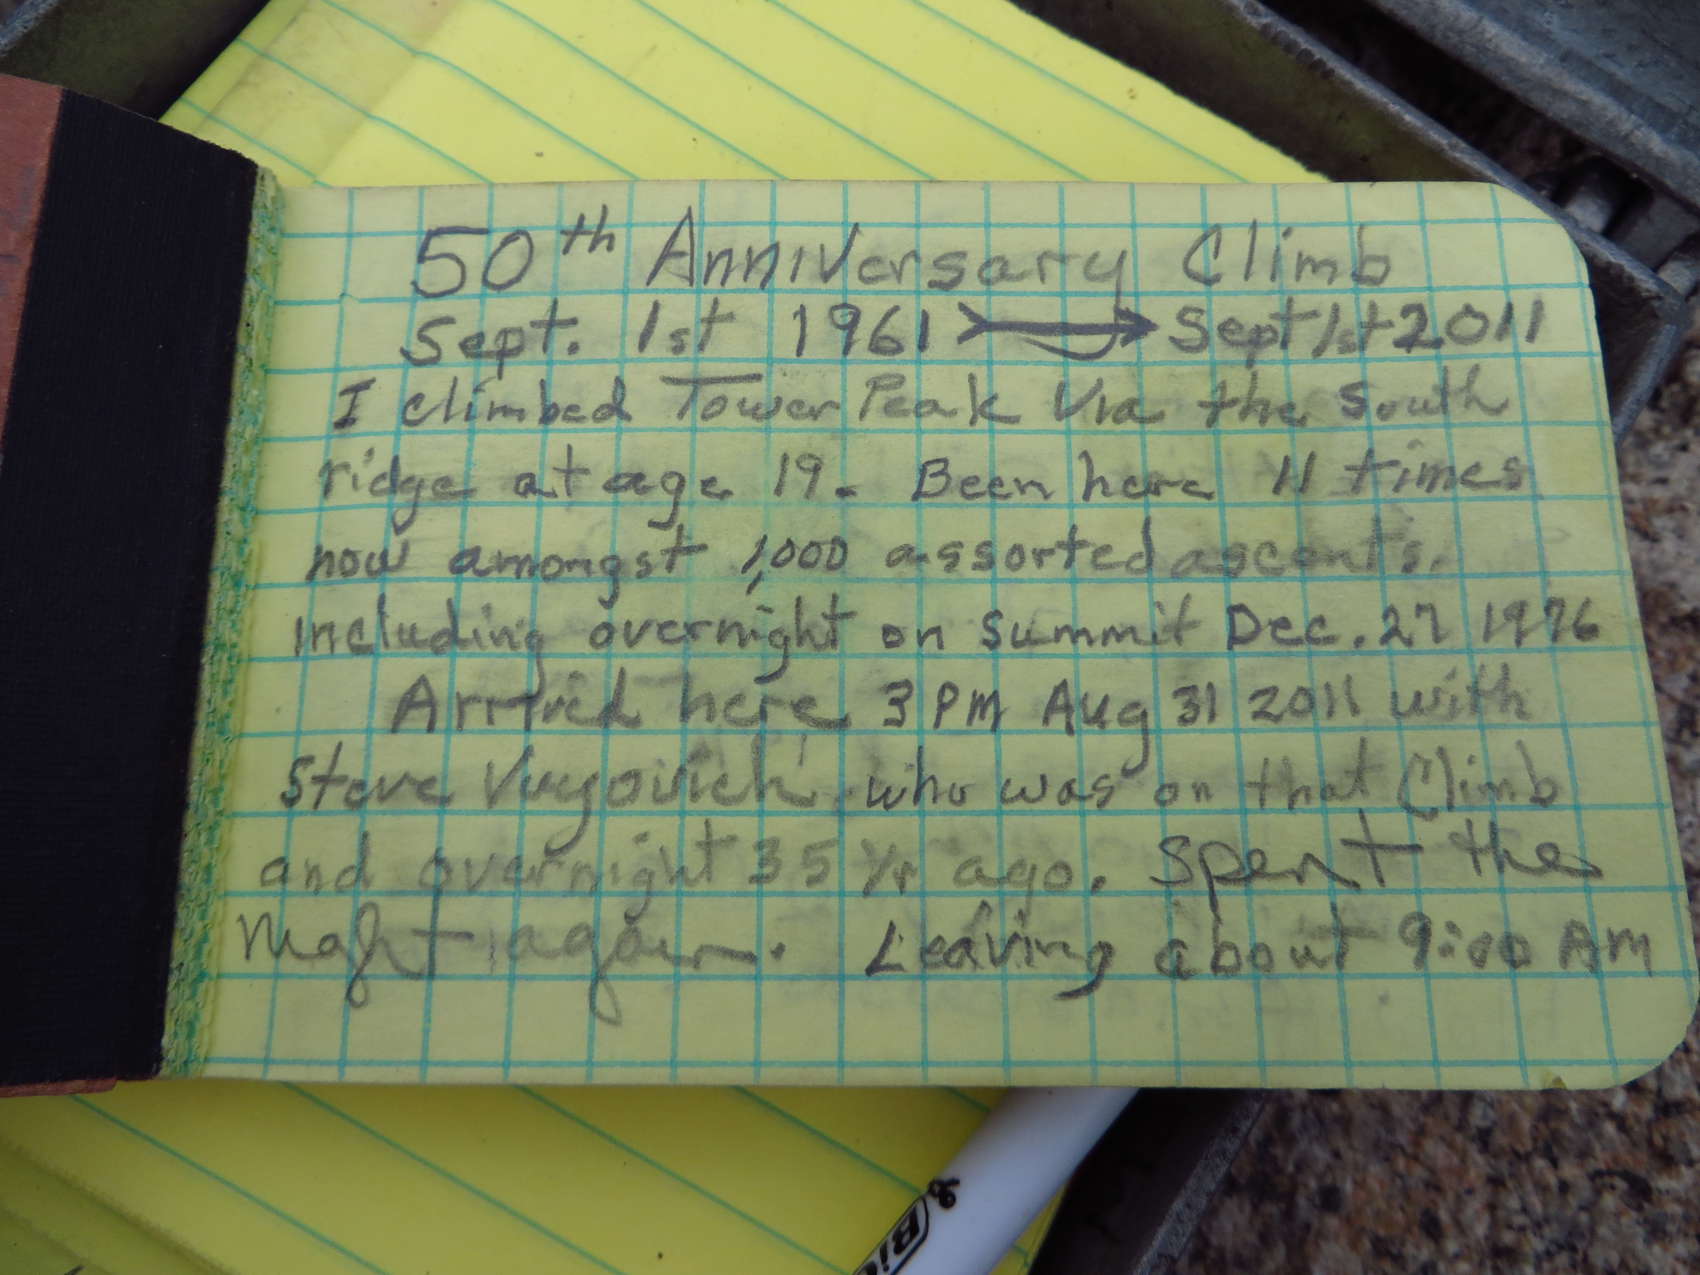 50th Anniversary Climb
Sept. 1st 1961 → Sept 1st 2011
I climbed Tower Peak Via the South
ridge at age 19. Been here 11 times
now amongst 1,000 assorted ascents.
including overnight on summit Dec. 27 1976
Arrived here 3 PM Aug 31 2011 with
Steve Vuyovich who was on that Climb
and overnight 35 Yr ago. Spent the
Night again. Leaving about 9:00 AM
BIC